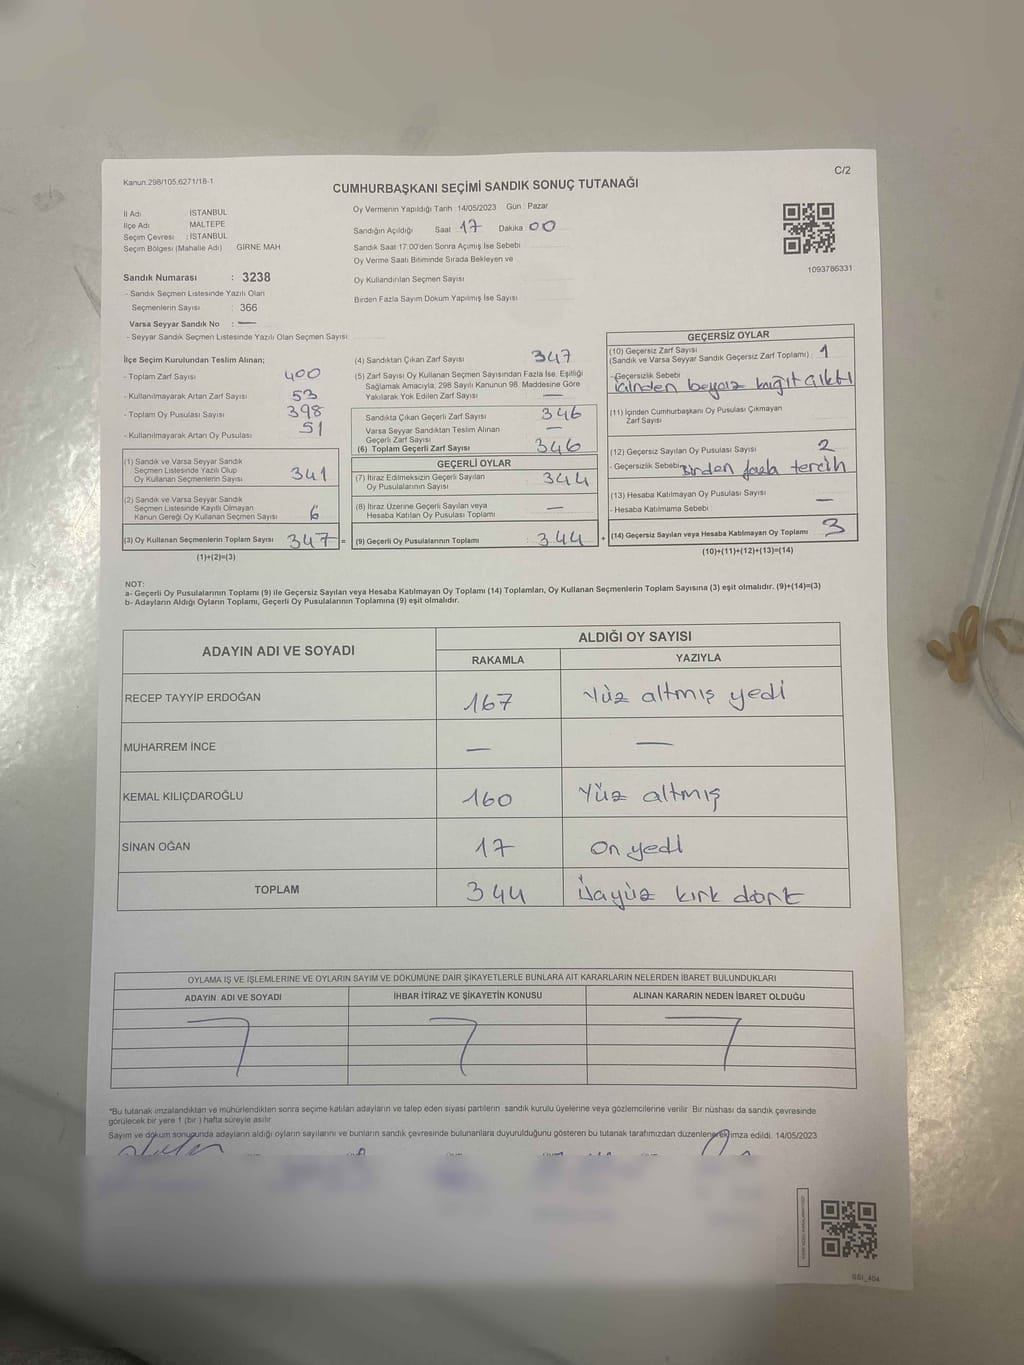 Kanun.298/105.6271/18-1
C/2
CUMHURBAŞKANI SEÇİMİ SANDIK SONUÇ TUTANAĞI
İl Adı İSTANBUL
İlçe Adı MALTEPE
Seçim Çevresi : İSTANBUL
Seçim Bölgesi (Mahalle Adı) GİRNE MAH
Sandık Numarası : 3238
- Sandık Seçmen Listesinde Yazılı Olan
Seçmenlerin Sayısı : 366
Varsa Seyyar Sandık No : —
- Seyyar Sandık Seçmen Listesinde Yazılı Olan Seçmen Sayısı:
Oy Vermenin Yapıldığı Tarih : 14/05/2023 Gün : Pazar
Sandığın Açıldığı Saat 17 Dakika 00
Sandık Saat 17:00'den Sonra Açımış İse Sebebi
Oy Verme Saati Bitiminde Sırada Bekleyen ve
Oy Kullandırılan Seçmen Sayısı
Birden Fazla Sayım Döküm Yapılmış İse Sayısı
1093786331
İlçe Seçim Kurulundan Teslim Alınan;
- Toplam Zarf Sayısı 400
- Kullanılmayarak Artan Zarf Sayısı 53
- Toplam Oy Pusulası Sayısı 398
- Kullanılmayarak Artan Oy Pusulası 51
(1) Sandık ve Varsa Seyyar Sandık
Seçmen Listesinde Yazılı Olup
Oy Kullanan Seçmenlerin Sayısı 341
(2) Sandık ve Varsa Seyyar Sandık
Seçmen Listesinde Kayıtlı Olmayan
Kanun Gereği Oy Kullanan Seçmen Sayısı 6
(3) Oy Kullanan Seçmenlerin Toplam Sayısı 347 =
(1)+(2)=(3)
(4) Sandıktan Çıkan Zarf Sayısı 347
(5) Zarf Sayısı Oy Kullanan Seçmen Sayısından Fazla İse, Eşitliği
Sağlamak Amacıyla, 298 Sayılı Kanunun 98. Maddesine Göre
Yakılarak Yok Edilen Zarf Sayısı —
Sandıkta Çıkan Geçerli Zarf Sayısı 346
Varsa Seyyar Sandıktan Teslim Alınan
Geçerli Zarf Sayısı —
(6) Toplam Geçerli Zarf Sayısı 346
GEÇERLİ OYLAR
(7) İtiraz Edilmeksizin Geçerli Sayılan
Oy Pusulalarının Sayısı 344
(8) İtiraz Üzerine Geçerli Sayılan veya
Hesaba Katılan Oy Pusulası Toplamı —
(9) Geçerli Oy Pusulalarının Toplamı : 344 +
GEÇERSİZ OYLAR
(10) Geçersiz Zarf Sayısı
(Sandık ve Varsa Seyyar Sandık Geçersiz Zarf Toplamı) : 1
- Geçersizlik Sebebi
içinden beyaz kağıt çıktı
(11) İçinden Cumhurbaşkanı Oy Pusulası Çıkmayan
Zarf Sayısı
(12) Geçersiz Sayılan Oy Pusulası Sayısı 2
- Geçersizlik Sebebi Birden fazla tercih
(13) Hesaba Katılmayan Oy Pusulası Sayısı —
- Hesaba Katılmama Sebebi
(14) Geçersiz Sayılan veya Hesaba Katılmayan Oy Toplamı 3
(10)+(11)+(12)+(13)=(14)
NOT:
a- Geçerli Oy Pusulalarının Toplamı (9) ile Geçersiz Sayılan veya Hesaba Katılmayan Oy Toplamı (14) Toplamları, Oy Kullanan Seçmenlerin Toplam Sayısına (3) eşit olmalıdır. (9)+(14)=(3)
b- Adayların Aldığı Oyların Toplamı, Geçerli Oy Pusulalarının Toplamına (9) eşit olmalıdır.
ADAYIN ADI VE SOYADI
ALDIĞI OY SAYISI
RAKAMLA YAZIYLA
RECEP TAYYİP ERDOĞAN 167 Yüz altmış yedi
MUHARREM İNCE — —
KEMAL KILIÇDAROĞLU 160 Yüz altmış
SİNAN OĞAN 17 On yedi
TOPLAM 344 Üçyüz kırk dört
OYLAMA İŞ VE İŞLEMLERİNE VE OYLARIN SAYIM VE DÖKÜMÜNE DAİR ŞİKAYETLERLE BUNLARA AİT KARARLARIN NELERDEN İBARET BULUNDUKLARI
ADAYIN ADI VE SOYADI İHBAR İTİRAZ VE ŞİKAYETİN KONUSU ALINAN KARARIN NEDEN İBARET OLDUĞU
*Bu tutanak imzalandıktan ve mühürlendikten sonra seçime katılan adayların ve talep eden siyasi partilerin sandık kurulu üyelerine veya gözlemcilerine verilir. Bir nüshası da sandık çevresinde
görülecek bir yere 1 (bir ) hafta süreyle asılır
Sayım ve döküm sonucunda adayların aldığı oyların sayılarını ve bunların sandık çevresinde bulunanlara duyurulduğunu gösteren bu tutanak tarafımızdan düzenlenerek imza edildi. 14/05/2023